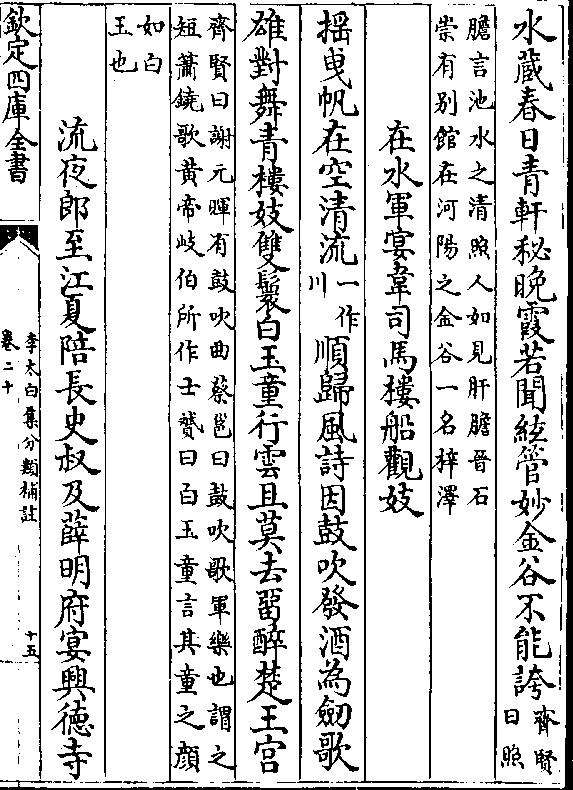 水蔵春日青軒秘晚霞若聞絃管妙金谷不能誇齊賢曰照
膽言池水之清照人如見肝膽晉石
崇有别館在河陽之金谷一名梓澤
在水軍宴韋司馬樓船觀妓
揺曳帆在空清流一作川順歸風詩因鼓吹發酒為劒歌
雄對舞青樓妓雙鬟白玉童行雲且莫去留醉楚王宫
齊賢曰謝元暉有鼓吹曲蔡邕曰鼓吹歌軍樂也謂之
短簫鐃歌黄帝岐伯所作士贇曰白玉童言其童之顔
如白
玉也
流夜郎至江夏陪長史叔及薛明府宴興德寺
欽定四庫全書
李太白集分類補註
卷二十
十五